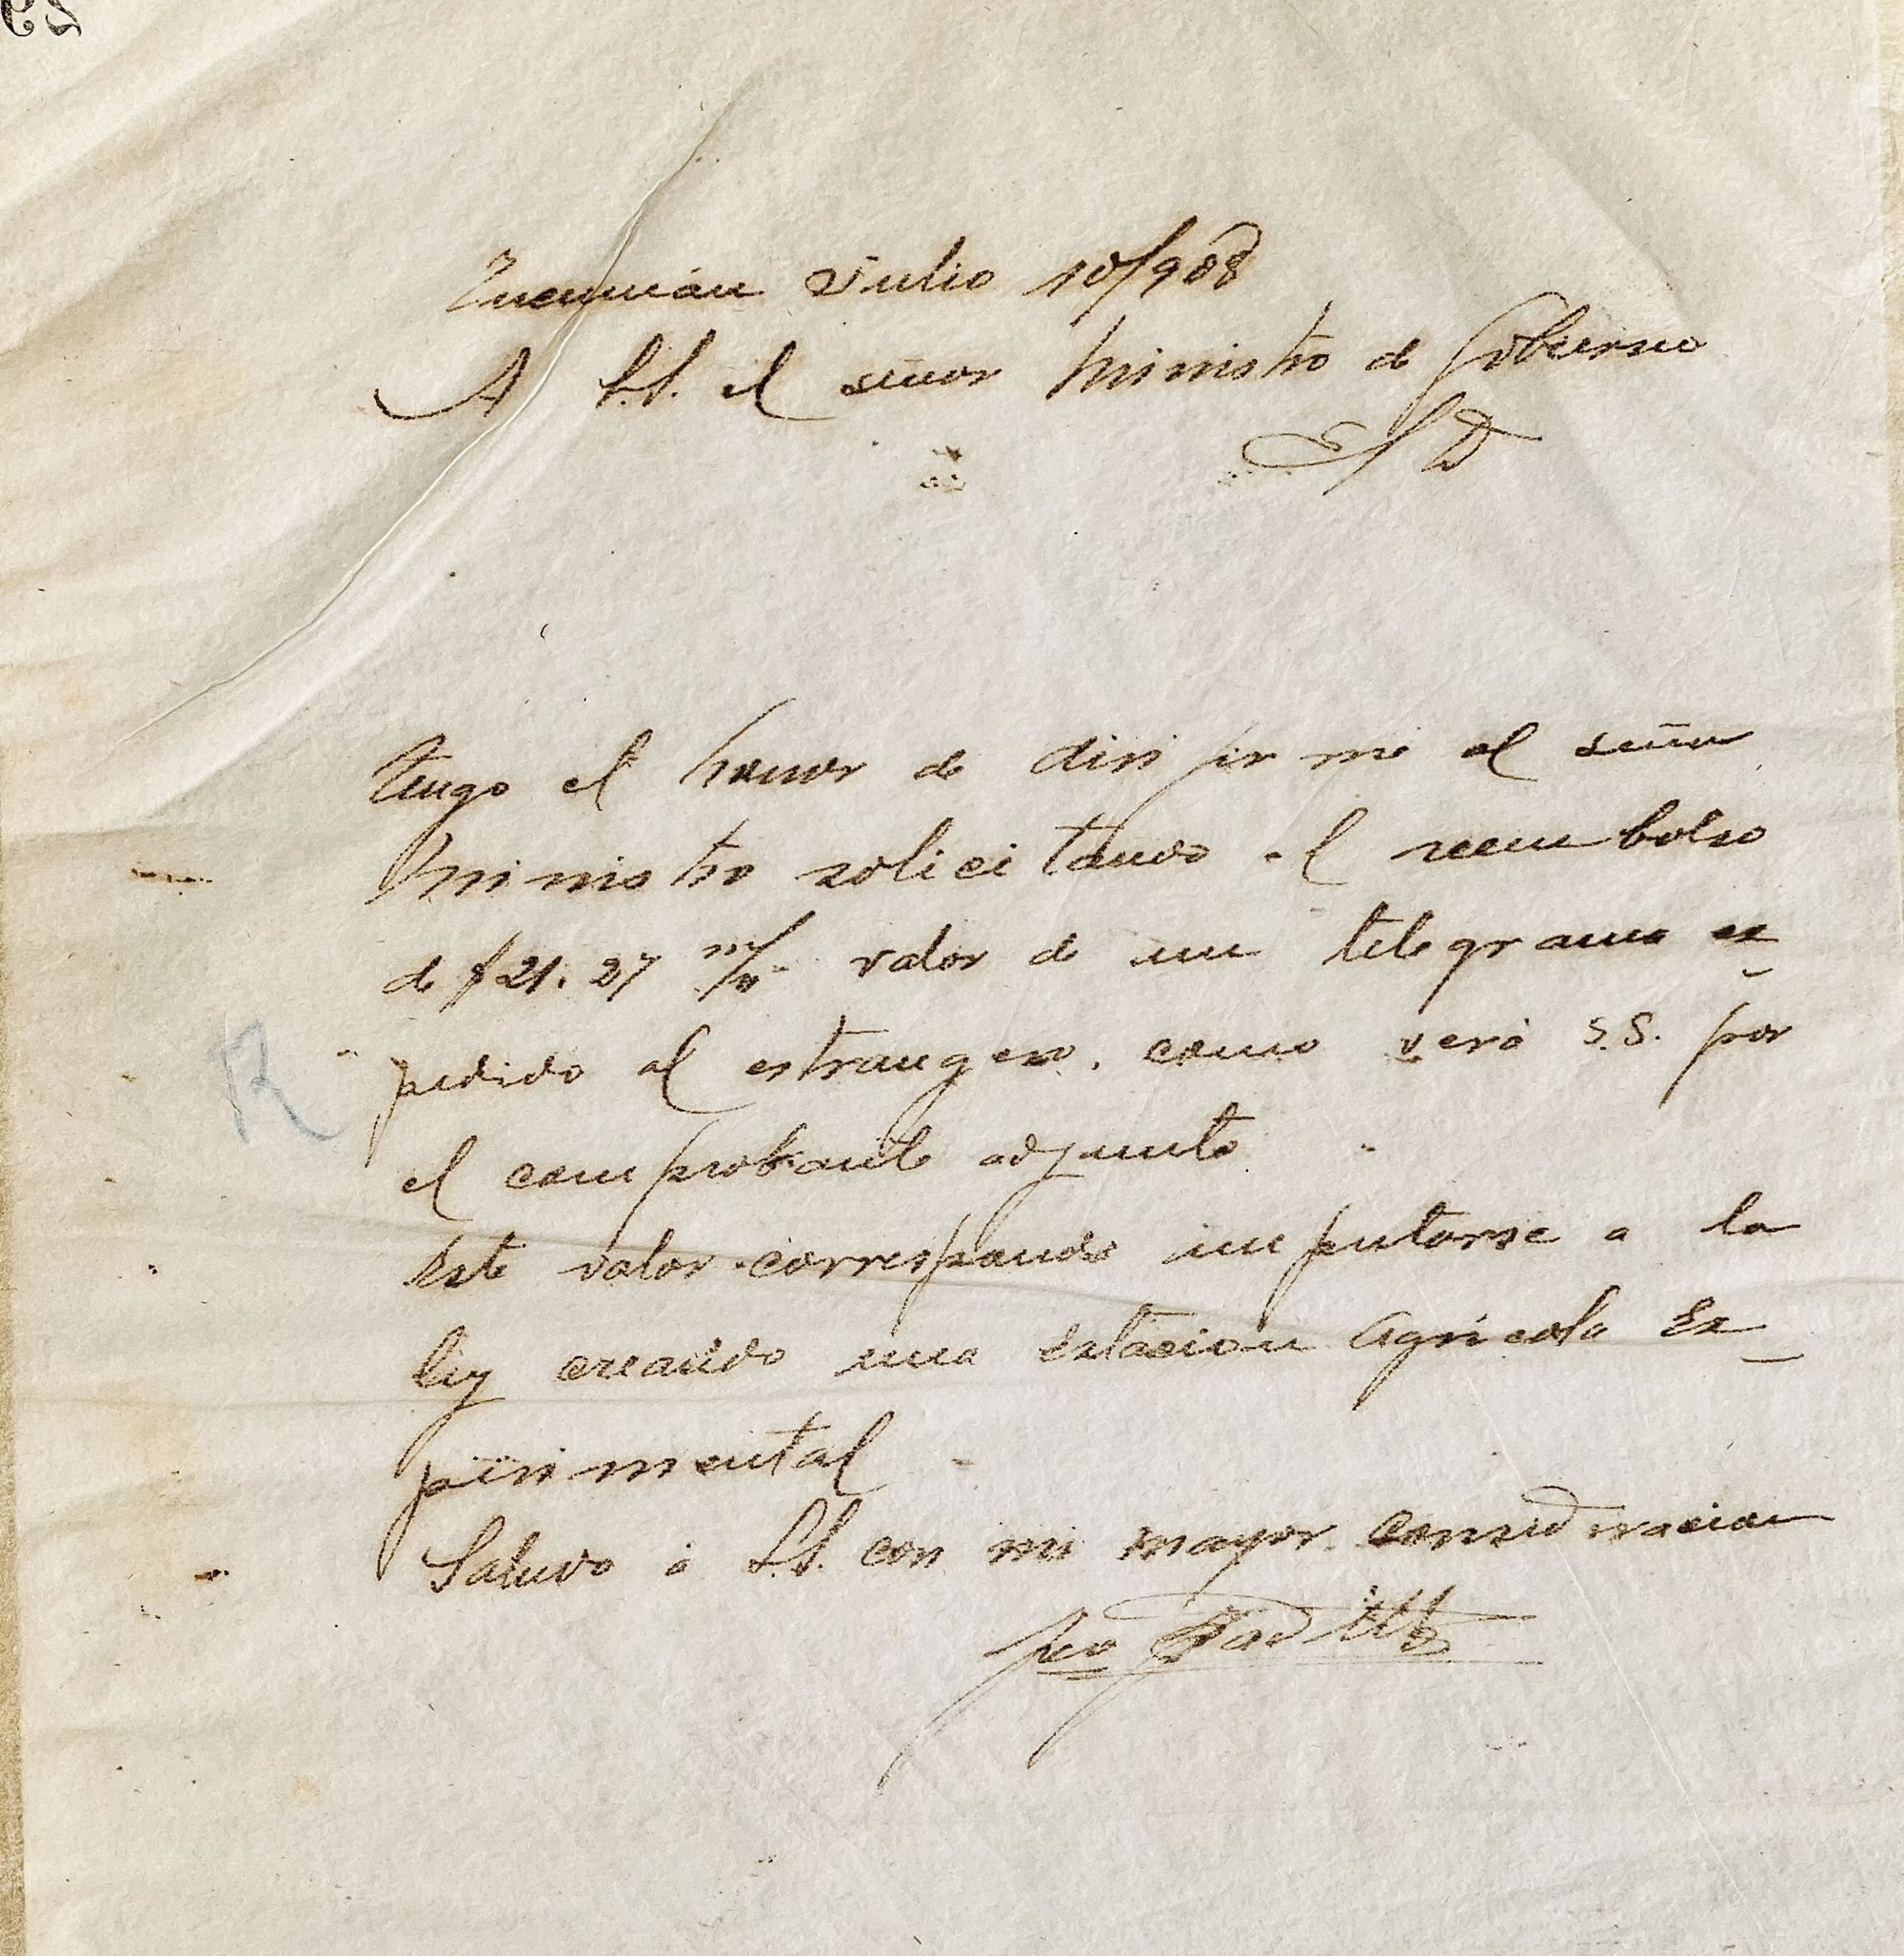 Tucumán Julio 10/908
A S.S. el señor Ministro de Gobierno
S/D
Tengo el honor de dirijirme al señor
Ministro solicitando el reembolso
de $21.27 m/n valor de un telegrama ex
pedido al estrangero, como verá S.S. por
el comprobante adjunto
Este valor corresponde imputarse a la
ley creando una Estacion Agricola Ex
perimental
Saludo á S.S. con mi mayor consideracion